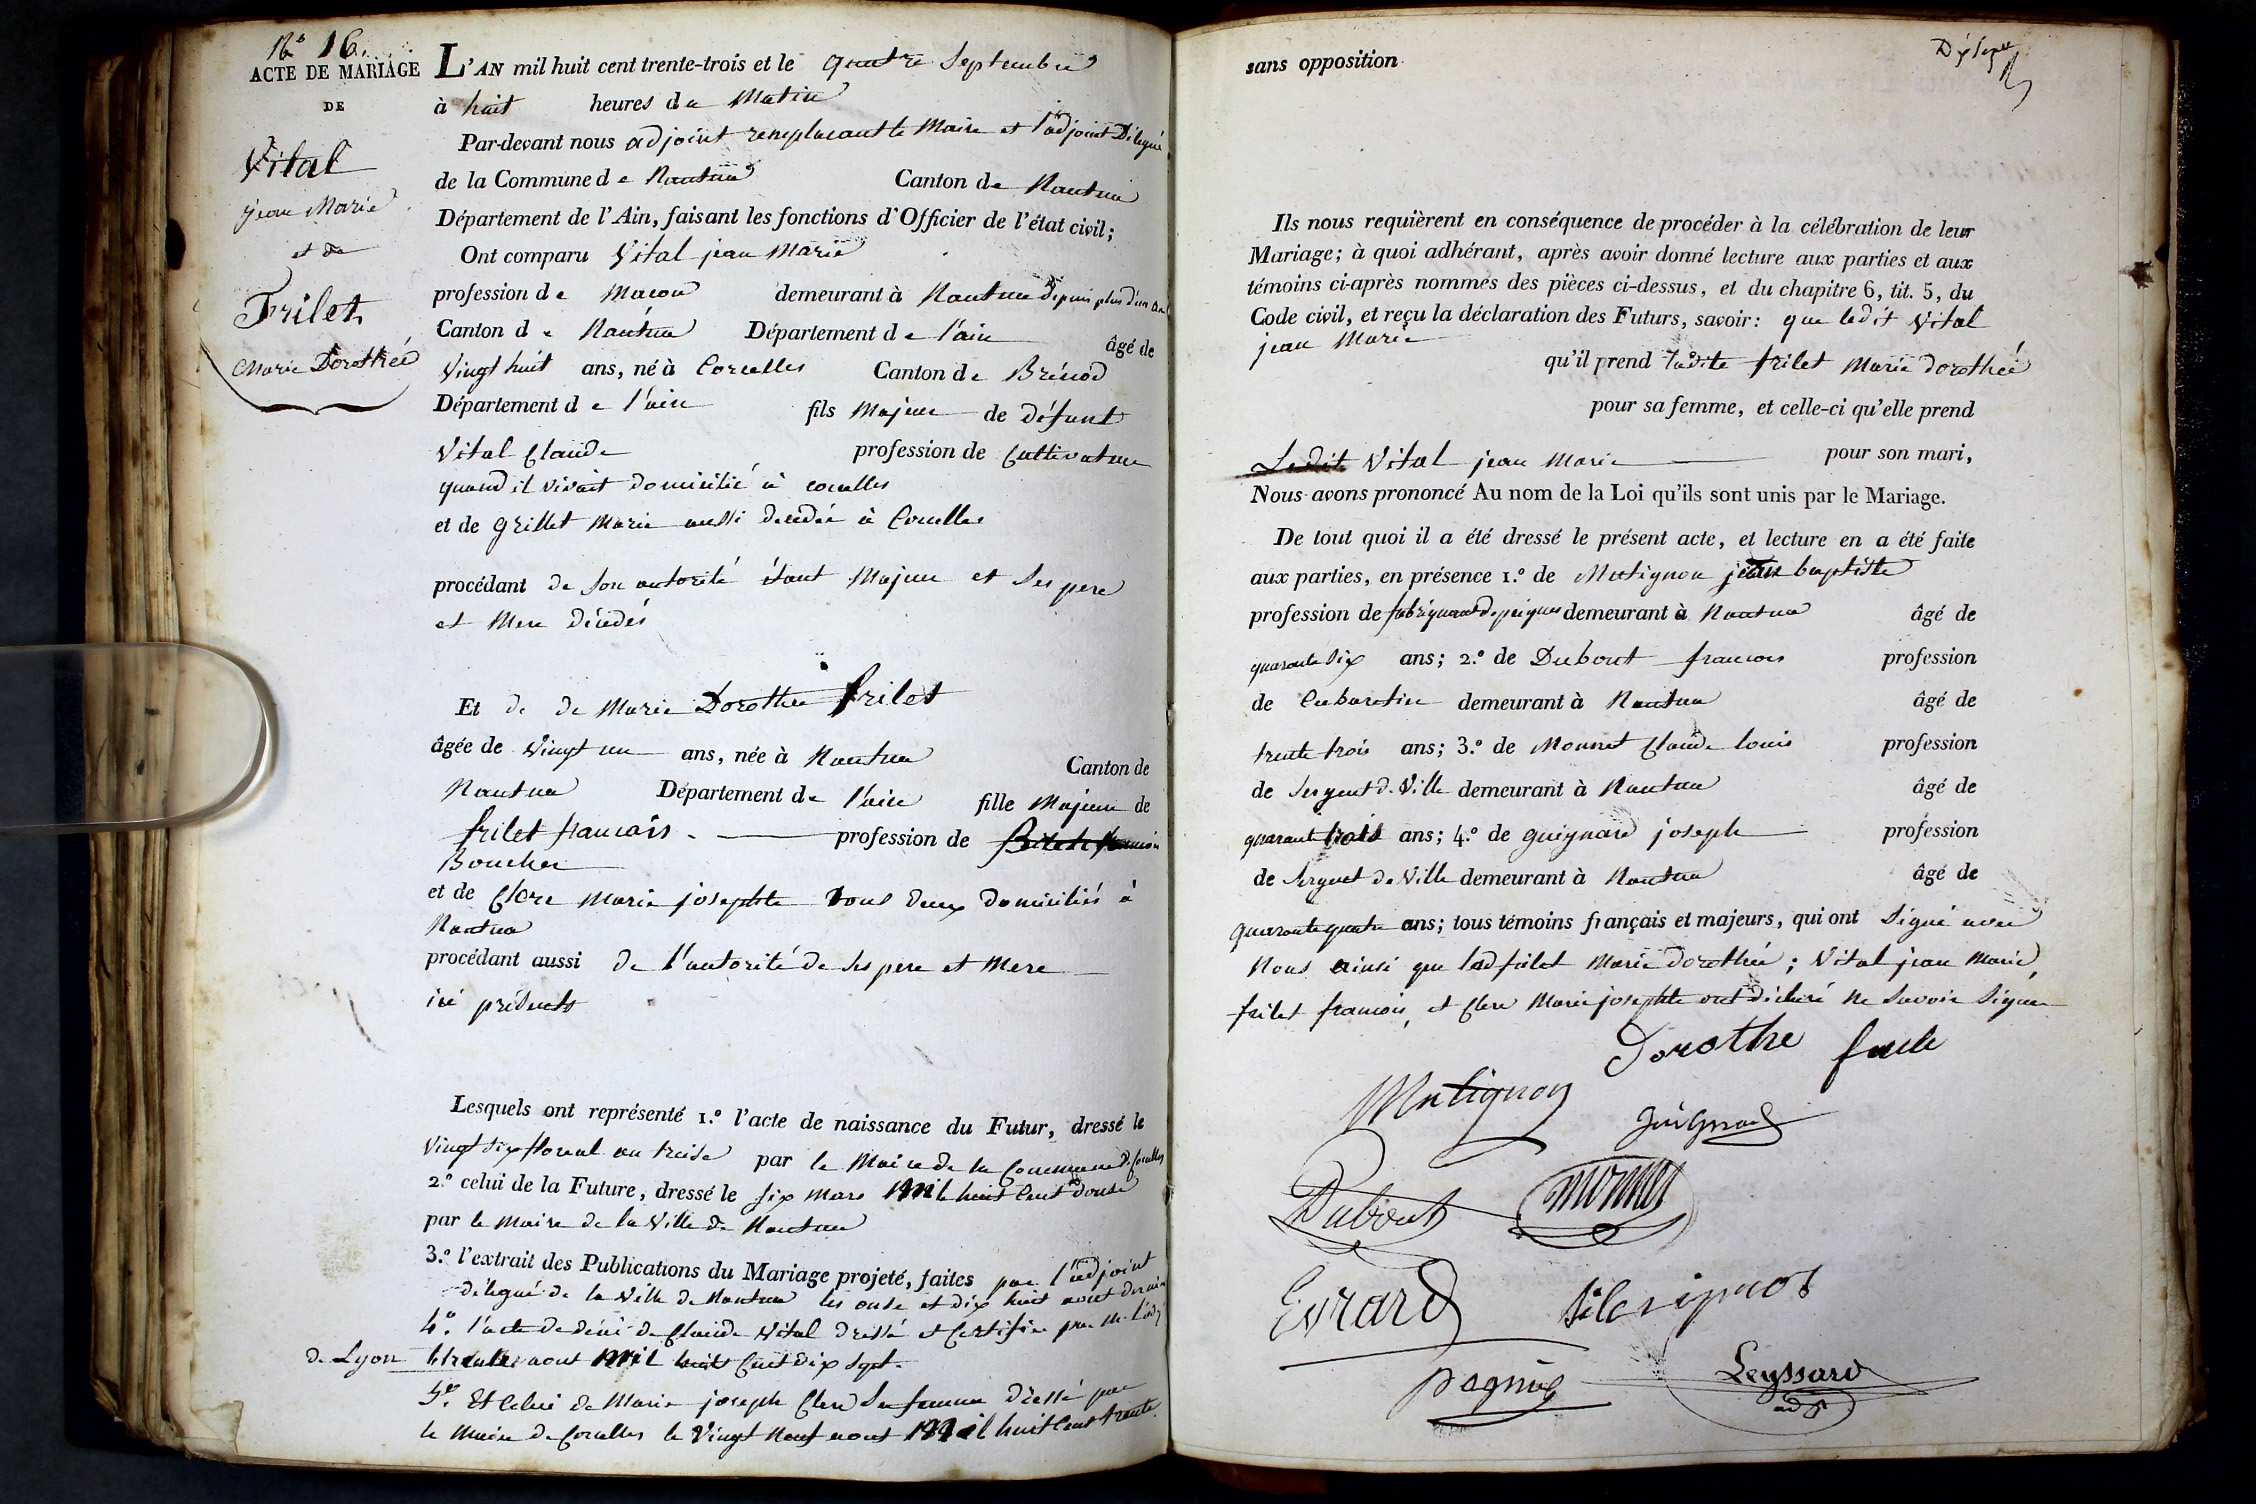 N° 16.
ACTE DE MARIAGE
DE
Vital
jean Marie
et de
Frilet
Marie Dorothée
L'AN mil huit cent trente-trois et le quatre Septembre
à huit heures du Matin
Par-devant nous adjoint remplacant le Maire et l'adjoint Délégué
de la Commune de Nantua Canton de Nantua
Département de l'Ain, faisant les fonctions d'Officier de l'état civil;
Ont comparu Vital jean Marie
profession de Macon demeurant à Nantua depuis plus d'un an
Canton de Nantua Département de l'ain âgé de
Vingt huit ans, né à Corcelles Canton de Brénod
Département de l'ain fils Majeur de défunt
Vital Claude profession de Cultivateur
quand il vivait domicilié à corcelles
et de grillet Marie aussi décédée à Corcelles
procédant de son autorité étant Majeur et Ses pere
et Mere décédés
Et de de Marie Dorothée frilet
âgée de Vingt un ans, née à Nantua Canton de
Nantua Département de l'ain fille Majeure de
frilet francois profession de
Boucher
et de Clere Marie josephte tous deux domiciliés à
Nantua
procédant aussi de l'autorité de ses pere et Mere
ici présents
Lesquels ont représenté 1.° l'acte de naissance du Futur, dressé le
Vingt six floreal an treise par le Maire de la Commune de Corcelles
2.° celui de la Future, dressé le six Mars Mil huit Cent douse
par le Maire de la Ville de Nantua
3.° l'extrait des Publications du Mariage projeté, faites par l'adjoint
délégué de la Ville de Nantua les onse et dix huit aout dernier
4.° l'acte de décé de Claude Vital dressé et Certifié par M. l'adj.
de Lyon le trente aout Mil huit Cent dix sept.
5.° Et Celui de Marie joseph Clere Sa femme Dressé par
le Maire de Corcelles le Vingt Neuf aout Mil huit Cent trente.
sans opposition
Ils nous requièrent en conséquence de procéder à la célébration de leur
Mariage; à quoi adhérant, après avoir donné lecture aux parties et aux
témoins ci-après nommés des pièces ci-dessus, et du chapitre 6, tit. 5, du
Code civil, et reçu la déclaration des Futurs, savoir: que ledit Vital
jean Marie
qu'il prend ladite frilet Marie dorothée
pour sa femme, et celle-ci qu'elle prend
Ledit Vital jean Marie pour son mari,
Nous avons prononcé Au nom de la Loi qu'ils sont unis par le Mariage.
De tout quoi il a été dressé le présent acte, et lecture en a été faite
aux parties, en présence 1.° de Matignon jean baptiste
profession de fabriquant de peignes demeurant à Nantua âgé de
quarante six ans; 2.° de Dubout francois profession
de Cabaretier demeurant à Nantua âgé de
trente trois ans; 3.° de Monnet Claude louis profession
de Sergent de Ville demeurant à Nantua âgé de
quarant trois ans; 4.° de guignard joseph profession
de Sergent de Ville demeurant à Nantua âgé de
quarante quatre ans; tous témoins français et majeurs, qui ont Signé avec
Nous ainsi que lad frilet Marie dorothée; Vital jean Marie,
frilet francois, et Clere Marie josephte ont déclaré ne Savoir Signer
Dorothe
Matignon
Guignard
Dubout
Monnet
Evrard
pagnié
Leyssard
adj